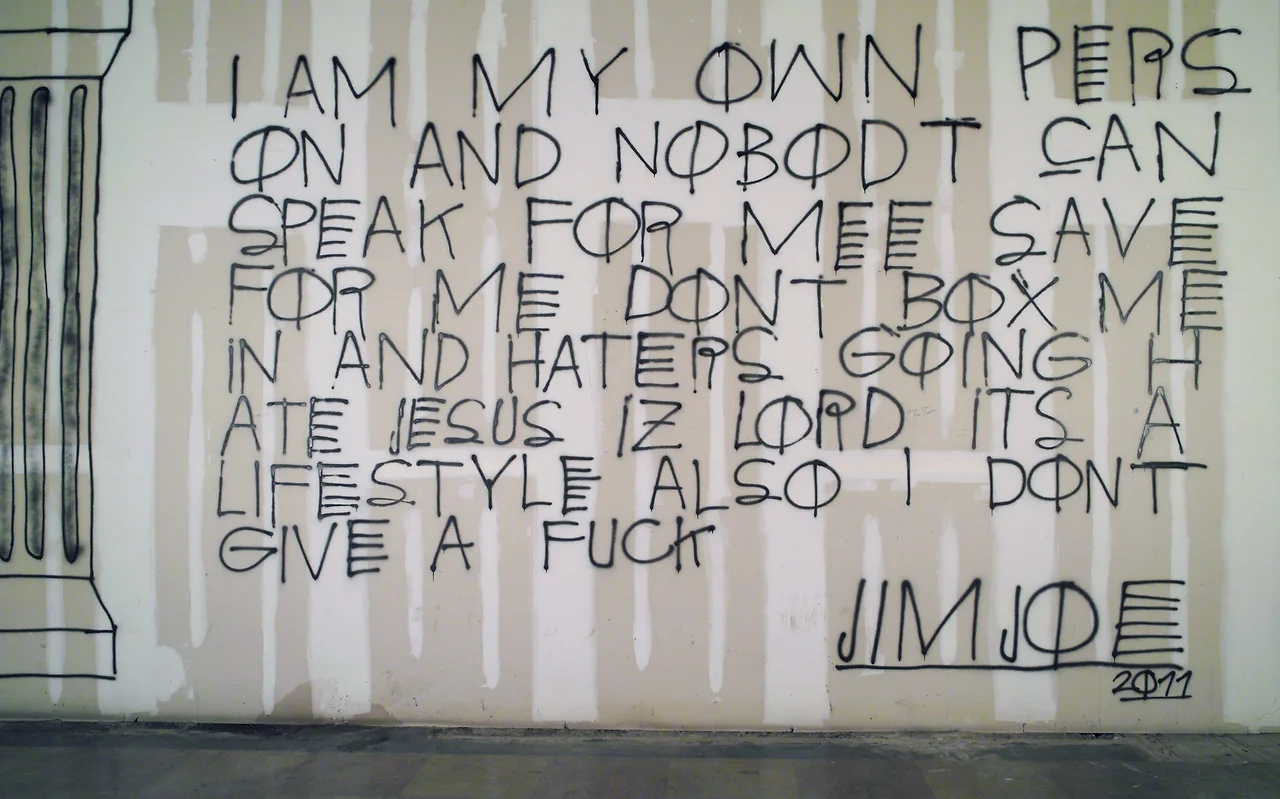 I AM MY OWN PERS
ON AND NOBODT CAN
SPEAK FOR MEE SAVE
FOR ME DONT BOX ME
IN AND HATERS GOING H
ATE JESUS IZ LORD ITS A
LIFESTYLE ALSO I DONT
GIVE A FUCK
JIMJOE
2011